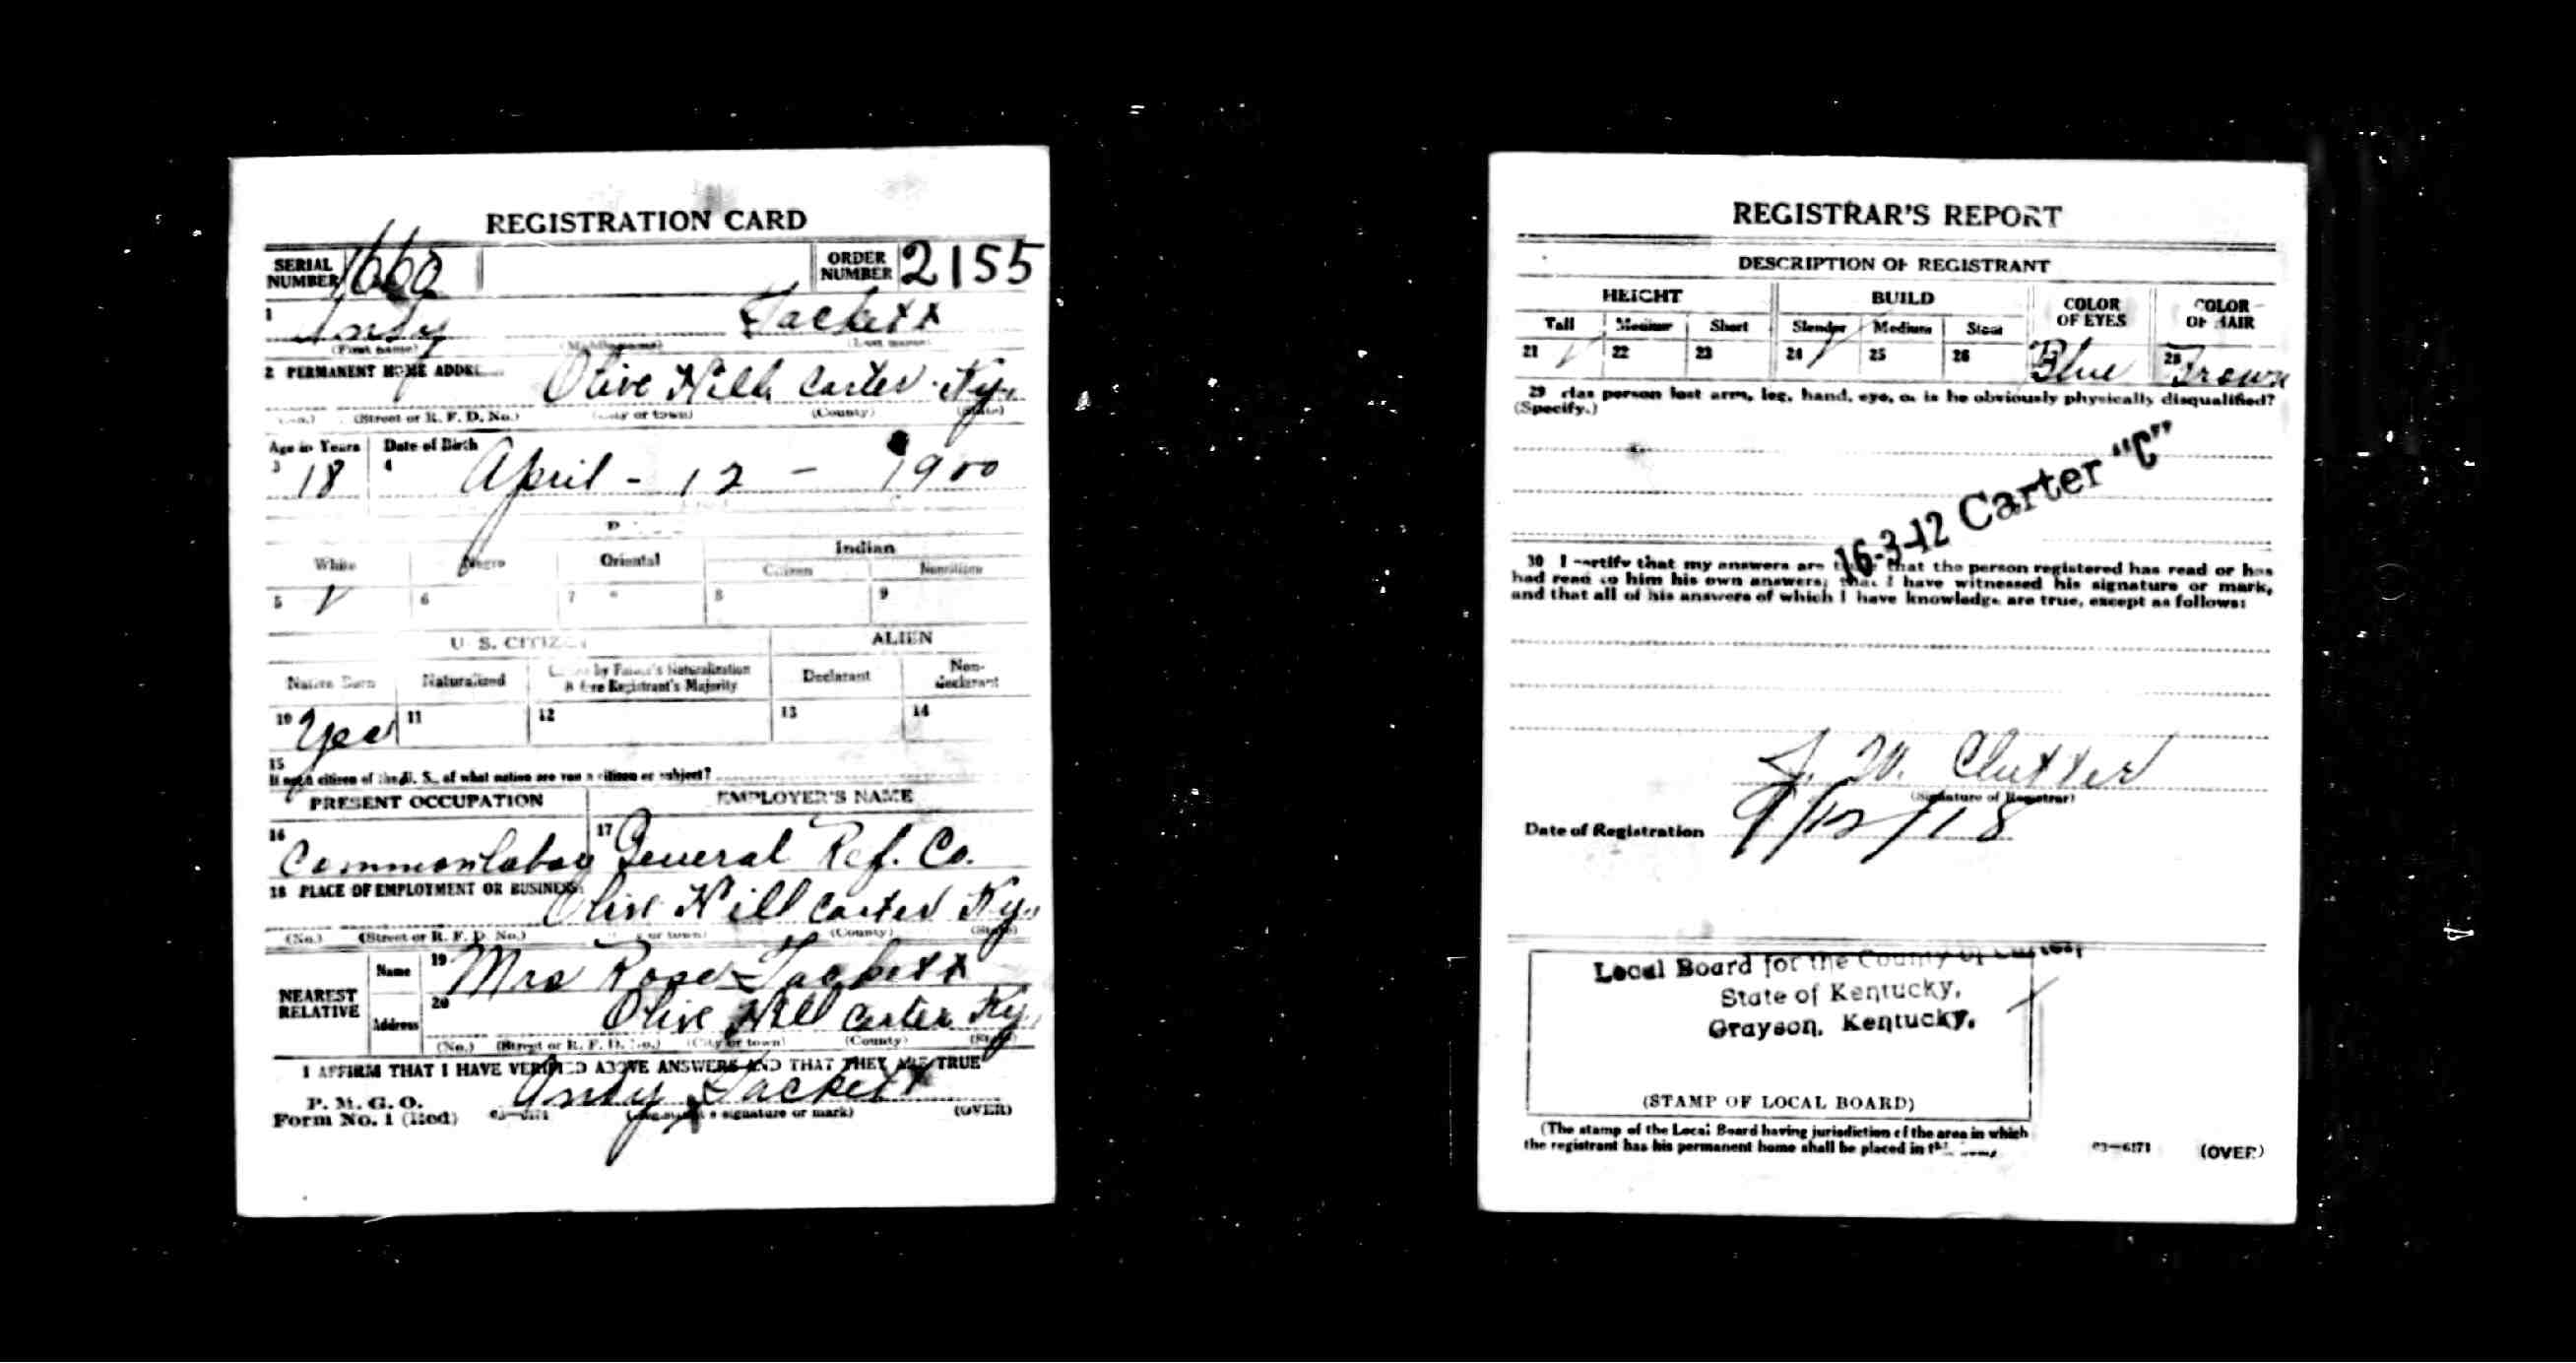 REGISTRATION CARD
SERIAL NUMBER 1660 ORDER NUMBER 2155
1 Andy Tackett
(First name) (Middle name) (Last name)
2 PERMANENT HOME ADDRESS Olive Hill Carter Ky.
(No.) (Street or R. F. D. No.) (City or town) (County) (State)
Age in Years Date of Birth
3 18 4 April - 12 - 1900
White Negro Oriental Indian
Citizen Noncitizen
5 6 7 8 9
U. S. CITIZEN ALIEN
Native Born Naturalized Citizen by Father's Naturalization Before Registrant's Majority Declarant Non-declarant
10 Yes 11 12 13 14
15
If not a citizen of the U. S., of what nation are you a citizen or subject?
PRESENT OCCUPATION EMPLOYER'S NAME
16 Common labor 17 General Ref. Co.
18 PLACE OF EMPLOYMENT OR BUSINESS: Olive Hill Carter Ky.
(No.) (Street or R. F. D. No.) (City or town) (County) (State)
NEAREST RELATIVE Name 19 Mrs Rose Tackett
Address 20 Olive Hill Carter Ky.
(No.) (Street or R. F. D. No.) (City or town) (County) (State)
I AFFIRM THAT I HAVE VERIFIED ABOVE ANSWERS AND THAT THEY ARE TRUE
P. M. G. O.
Form No. 1 (Red) 03—6171 Andy Tackett
(Registrant's signature or mark) (OVER)
REGISTRAR'S REPORT
DESCRIPTION OF REGISTRANT
HEIGHT BUILD COLOR OF EYES COLOR OF HAIR
Tall Medium Short Slender Medium Stout
21 22 23 24 25 26 Blue 28 Brown
29 Has person lost arm, leg, hand, eye, or is he obviously physically disqualified?
(Specify.)
16-3-12 Carter "C"
30 I certify that my answers are true; that the person registered has read or has
had read to him his own answers; that I have witnessed his signature or mark,
and that all of his answers of which I have knowledge are true, except as follows:
J. W. Clutter
(Signature of Registrar)
Date of Registration 9/12/18
Local Board for the County of Carter,
State of Kentucky,
Grayson, Kentucky.
(STAMP OF LOCAL BOARD)
(The stamp of the Local Board having jurisdiction of the area in which
the registrant has his permanent home shall be placed in this
03—6171 (OVER)